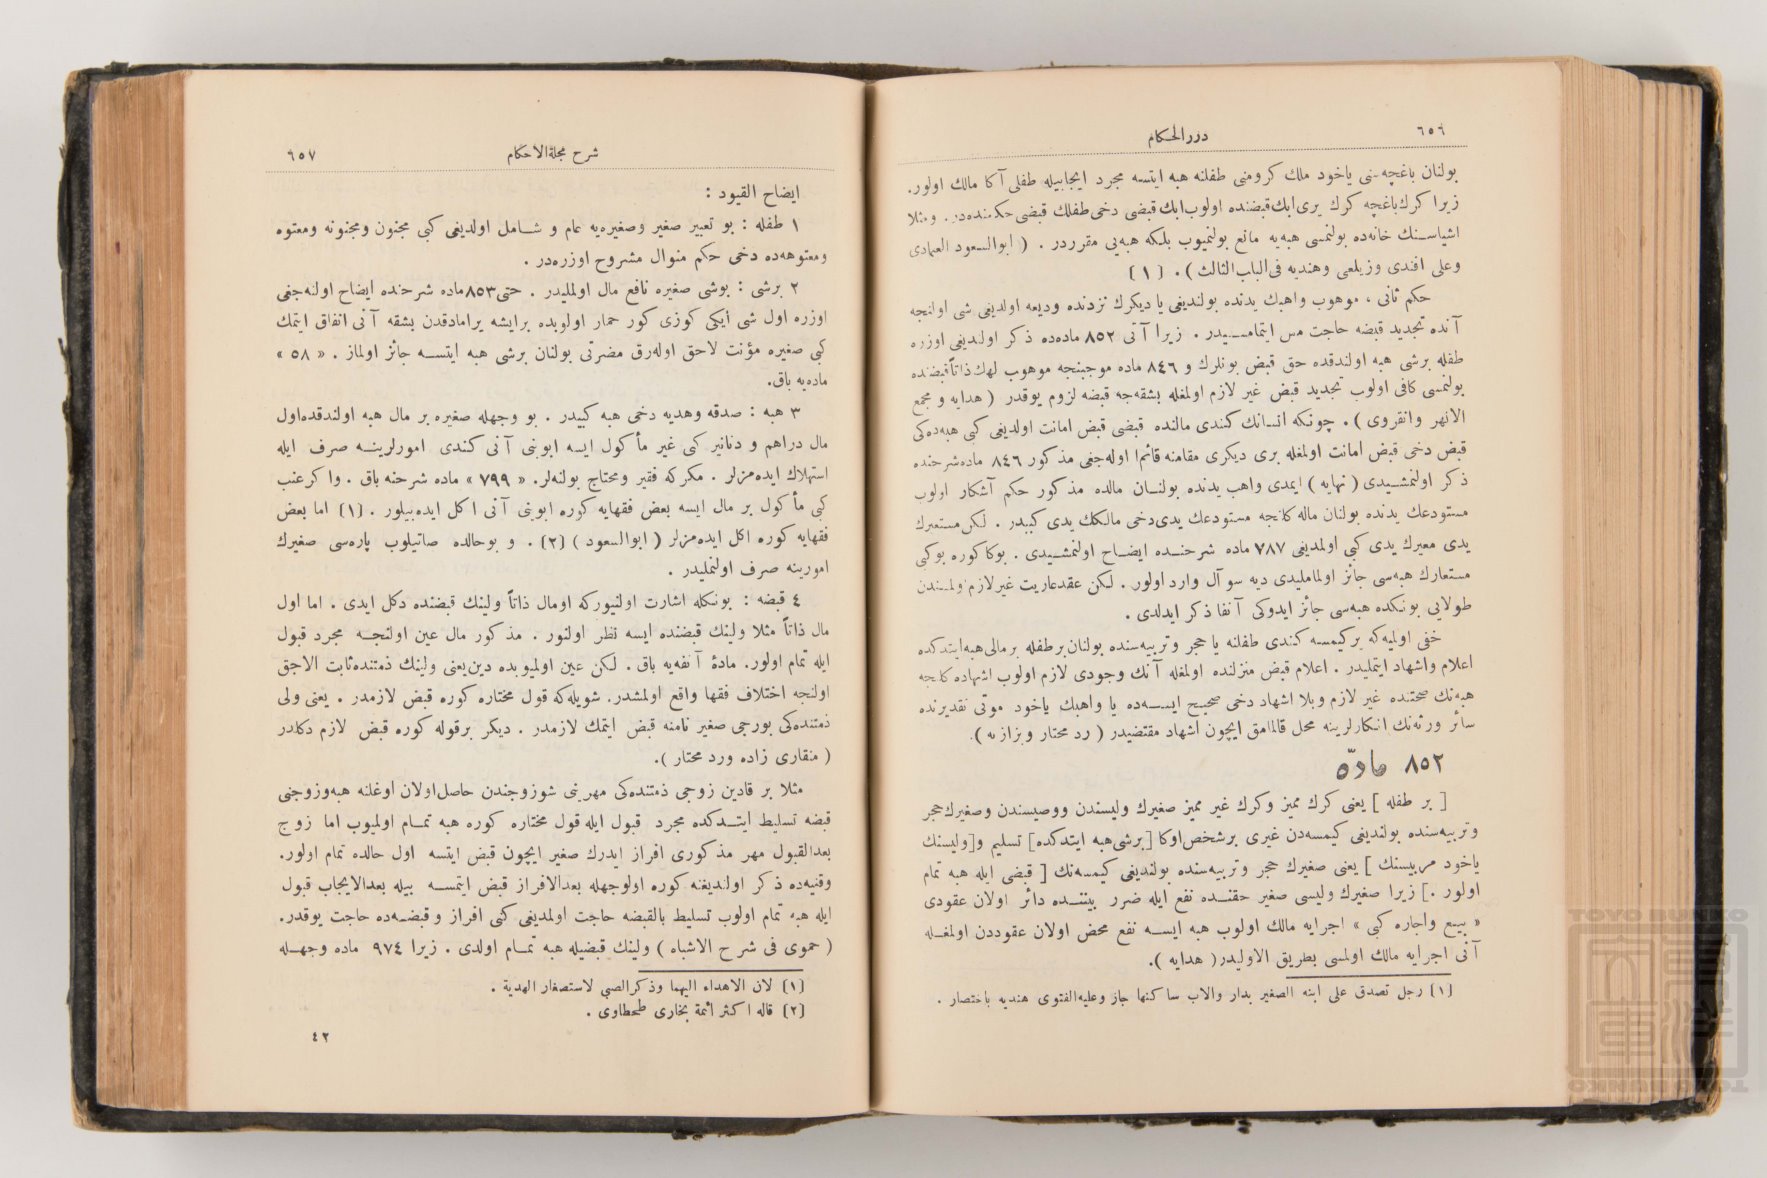 ٦٥٦
دررالحكام
بولنان باغچه‌سنی یاخود ملك كرومنی طفلنه هبه ایتسه مجرد ایجابیله طفلی آكا مالك اولور.
زیرا كرك باغچه كرك یری ابك قبضنده اولوب ابك قبضی دخی طفلك قبضی حكمنده‌در. ومثلا
اشیاسنك خانه‌ده بولنمسی هبه‌یه مانع بولنمیوب بلكه هبه‌یی مقرردر . ( ابوالسعود العمادی
وعلی افندی وزیلعی وهندیه فی‌الباب‌الثالث ) . (١)
حكم ثانی ، موهوب واهبك یدنده بولندیغی یا دیكرك نزدنده ودیعه اولدیغی شی اولنجه
آنده تجدید قبضه حاجت مس ایتمامسیدر . زیرا آتی ٨٥٢ ماده‌ده ذكر اولندیغی اوزره
طفله برشی هبه اولندقده حق قبض بونلرك و ٨٤٦ ماده موجبنجه موهوب لهك ذاتاً قبضنده
بولنمسی كافی اولوب تجدید قبض غیر لازم اولمغله بشقه‌جه قبضه لزوم یوقدر ( هدایه و مجمع
الانهر وانقروی ) . چونكه انسانك كندی مالنده قبضی قبض امانت اولدیغی كبی هبه‌ده‌كی
قبض دخی قبض امانت اولمغله بری دیكری مقامنه قائم اوله‌جغی مذكور ٨٤٦ ماده شرحنده
ذكر اولنمشیدی ( نهایه ) ایمدی واهب یدنده بولنان مالده مذكور حكم آشكار اولوب
مستودعك یدنده بولنان ماله كلنجه مستودعك یدی دخی مالكك یدی كبیدر . لكن مستعیرك
یدی معیرك یدی كبی اولمدیغی ٧٨٧ ماده شرحنده ایضاح اولنمشیدی . بوكا كوره بوكبی
مستعارك هبه‌سی جائز اولماملیدی دیه سوآل وارد اولور . لكن عقد عاریت غیر لازم اولمسندن
طولایی بونكده هبه‌سی جائز ایدوكی آنفا ذكر ایدلدی .
خفی اولمیه‌كه بركیمسه كندی طفلنه یا حجر وتربیه‌سنده بولنان بر طفله بر مالی هبه ایتدكده
اعلام واشهاد ایتملیدر . اعلام قبض منزلنده اولمغله آنك وجودی لازم اولوب اشهاده كلنجه
هبه‌نك صحتنده غیر لازم وبلا اشهاد دخی صحیح ایسه‌ده یا واهبك یاخود موتی تقدیرنده
سائر ورثه‌نك انكارلرینه محل قالمامق ایچون اشهاد مقتضیدر ( رد محتار وبزازیه ).
٨٥٢ مادّه
[ بر طفله ] یعنی كرك ممیز وكرك غیر ممیز صغیرك ولیسندن ووصیسندن وصغیرك حجر
وتربیه‌سنده بولندیغی كیمسه‌دن غیری برشخص اوكا [ برشی هبه ایتدكده ] تسلیم و[ ولیسنك
یاخود مربیسنك ] یعنی صغیرك حجر وتربیه‌سنده بولندیغی كیمسه‌نك [ قبضی ایله هبه تمام
اولور . ] زیرا صغیرك ولیسی صغیر حقنده نفع ایله ضرر بیننده دائر اولان عقودی
« بیع واجاره كبی » اجرایه مالك اولوب هبه ایسه نفع محض اولان عقوددن اولمغله
آنی اجرایه مالك اولمسی بطریق الاولیدر ( هدایه ).
(١) رجل تصدق علی ابنه الصغیر بدار والاب ساكنها جاز وعلیه‌الفتوی هندیه باختصار .
شرح مجلةالاحكام
٦٥٧
ایضاح القیود :
١ طفله : بو تعبیر صغیر وصغیره‌یه عام و شامل اولدیغی كبی مجنون ومجنونه ومعتوه
ومعتوهه‌ده دخی حكم منوال مشروح اوزره‌در .
٢ برشی : بوشی صغیره نافع مال اولملیدر . حتی ٨٥٣ ماده شرحنده ایضاح اولنه‌جغی
اوزره اول شی ایكی كوزی كور حمار اولوبده برایشه یرامادقدن بشقه آنی انفاق ایتمك
كبی صغیره مؤنت لاحق اوله‌رق مضرتی بولنان برشی هبه ایتسه جائز اولماز . « ٥٨ »
ماده‌یه باق.
٣ هبه : صدقه وهدیه دخی هبه كبیدر . بو وجهله صغیره بر مال هبه اولندقده اول
مال دراهم و دنانیر كبی غیر مأكول ایسه ابوینی آنی كندی امورلرینه صرف ایله
استهلاك ایده‌مزلر . مكركه فقیر ومحتاج بولنه‌لر. « ٧٩٩ » ماده شرحنه باق . واكر عنب
كبی مأكول بر مال ایسه بعض فقهایه كوره ابوینی آنی اكل ایده‌بیلور . (١) اما بعض
فقهایه كوره اكل ایده‌مزلر ( ابوالسعود ) (٢) . و بوحالده صاتیلوب پاره‌سی صغیرك
امورینه صرف اولنملیدر .
٤ قبضه : بونكله اشارت اولنیوركه اومال ذاتاً ولینك قبضنده دكل ایدی . اما اول
مال ذاتاً مثلا ولینك قبضنده ایسه نظر اولنور . مذكور مال عین اولنجه مجرد قبول
ایله تمام اولور. مادهٔ آنفه‌یه باق . لكن عین اولمیوبده دین یعنی ولینك ذمتنده ثابت الاجق
اولنجه اختلاف فقها واقع اولمشدر. شویله‌كه قول مختاره كوره قبض لازمدر . یعنی ولی
ذمتنده‌كی بورجی صغیر نامنه قبض ایتمك لازمدر . دیكر برقوله كوره قبض لازم دكلدر
( منقاری زاده ورد محتار ).
مثلا بر قادین زوجی ذمتنده‌كی مهرینی شو زوجندن حاصل اولان اوغلنه هبه وزوجنی
قبضه تسلیط ایتدكده مجرد قبول ایله قول مختاره كوره هبه تمام اولمیوب اما زوج
بعدالقبول مهر مذكوری افراز ایدرك صغیر ایچون قبض ایتسه اول حالده تمام اولور.
وقنیه‌ده ذكر اولندیغنه كوره اولوجهله بعدالافراز قبض ایتمسه بیله بعدالایجاب قبول
ایله هبه تمام اولوب تسلیط بالقبضه حاجت اولمدیغی كبی افراز و قبضه‌ده حاجت یوقدر.
( حموی فی شرح الاشباه ) ولینك قبضیله هبه تمام اولدی . زیرا ٩٧٤ ماده وجهله
(١) لان الاهداء الیهما وذكرالصبی لاستصغار الهدیة .
(٢) قاله اكثر أئمة بخاری طحطاوی .
٤٢
TOYO BUNKO